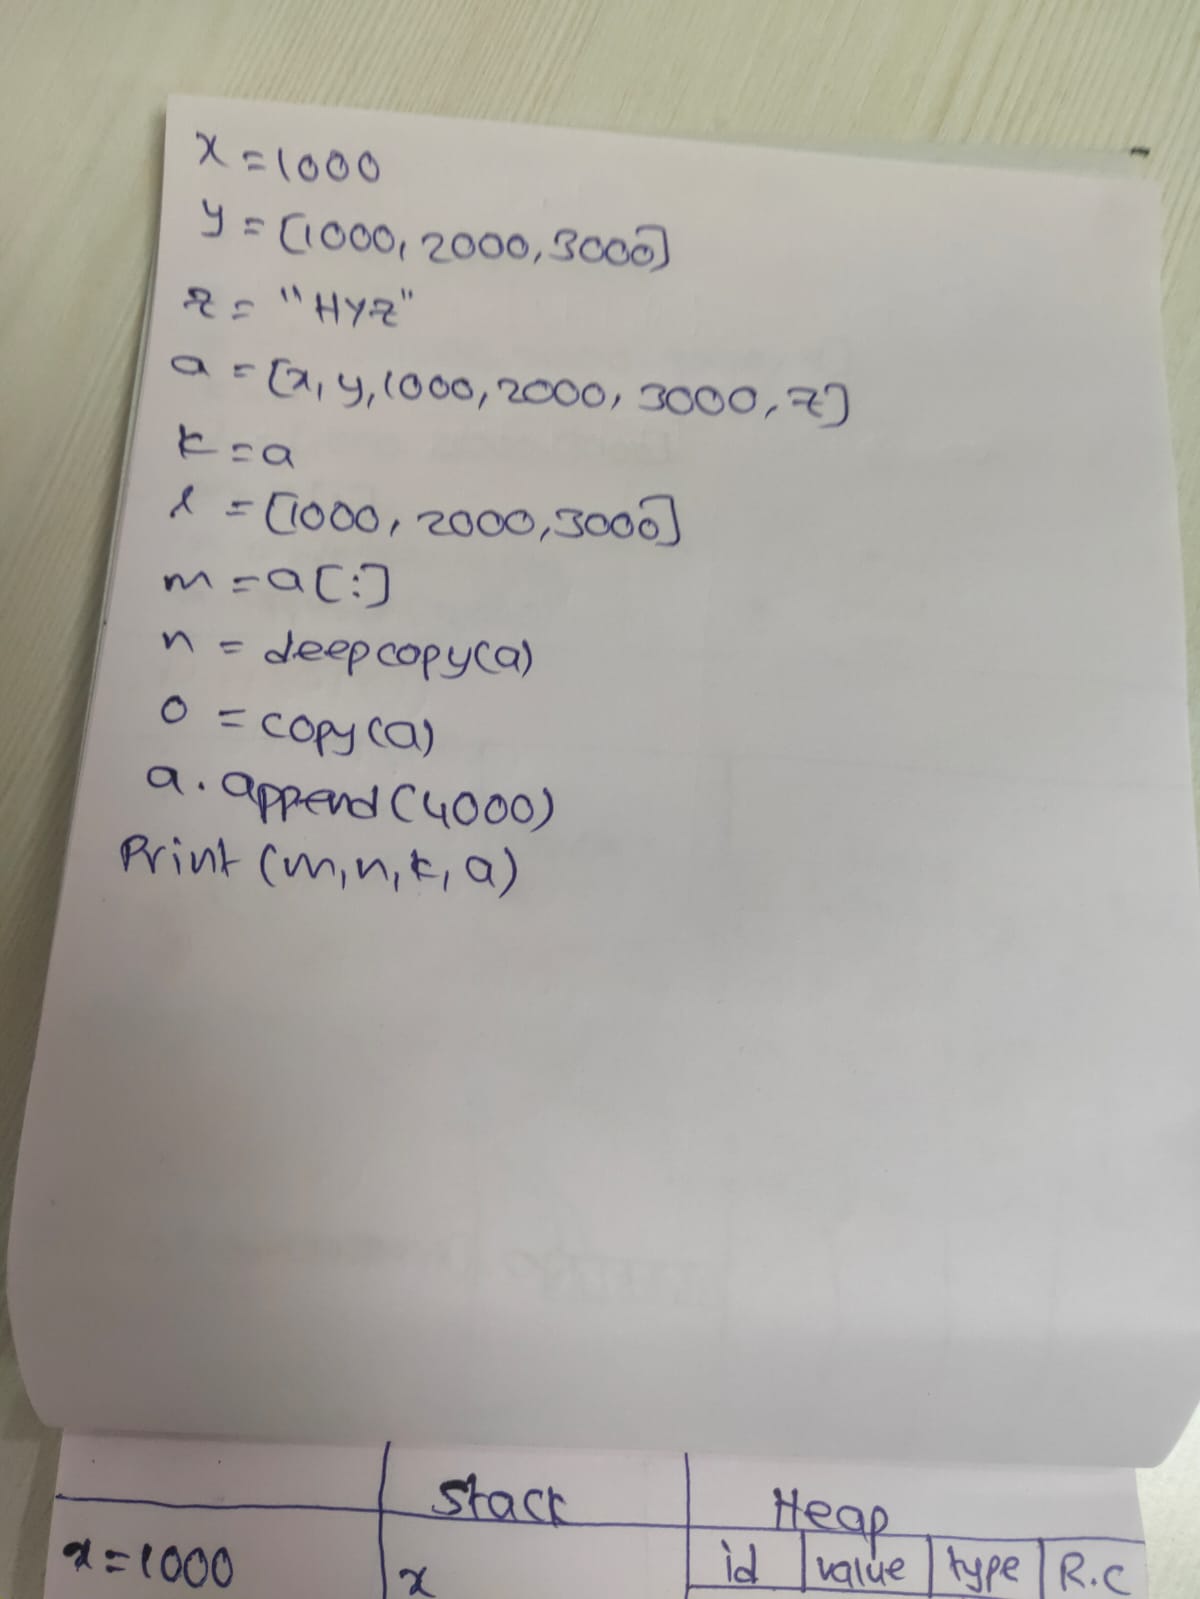 x = 1000
y = [1000, 2000, 3000]
z = "HYZ"
a = [x, y, 1000, 2000, 3000, z]
k = a
l = [1000, 2000, 3000]
m = a[:]
n = deepcopy(a)
o = copy(a)
a.append(4000)
Print (m, n, k, a)
Stack Heap
x = 1000 x id value type R.C